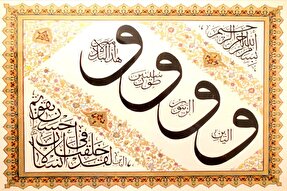 بسم الله الرحمن الرحيم
و التين
و الزيتون
و طور سينين
و هذا البلد
لقد خلقنا الانسان
في احسن تقويم